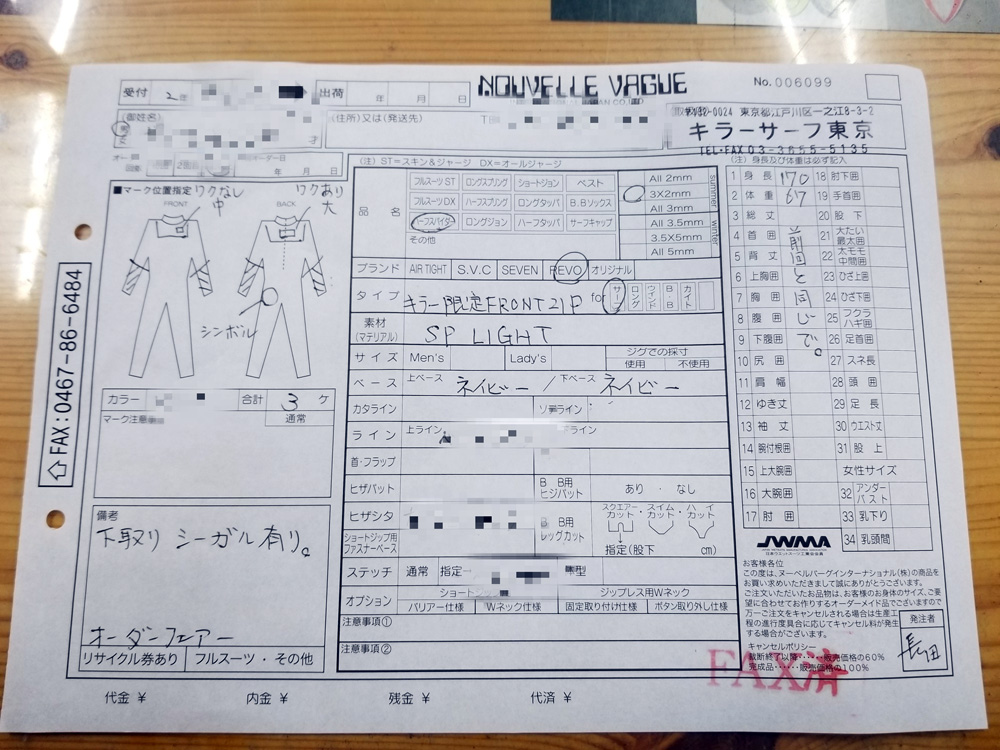 NOUVELLE VAGUE
No. 006099
受付 2年
出荷 年 月 日
御姓名
才
(住所)又は(発送先) 〒
東京都江戸川区一之江8-3-2
キラーサーフ東京
TEL・FAX 03-3655-5135
年 月 日
■マーク位置指定
ワクなし 中
ワクあり 大
FRONT
BACK
シンボル
カラー
合計 3 ケ
マーク注意
通常
FAX:0467-86-6484
備考
下取り シーガル有り。
オーダーフェアー
リサイクル券あり フルスーツ・その他
(注) ST=スキン&ジャージ DX=オールジャージ
品名
フルスーツST ロングスプリング ショートジョン ベスト
フルスーツDX ハーフスプリング ロングタッパ B.Bソックス
シーフスパイダー ロングジョン ハーフタッパ サーフキャップ
その他
All 2mm
3X2mm
All 3mm
All 3.5mm
3.5X5mm
All 5mm
summer
winter
ブランド AIR TIGHT S.V.C SEVEN REVO オリジナル
タイプ キラー限定FRONT ZIP for サーフ ロング ウインド BB カイト
素材(マテリアル) SP LIGHT
サイズ Men's Lady's ジグでの採寸 使用 不使用
ベース 上ベース ネイビー / 下ベース ネイビー
カタライン
ライン 上ライン
首・フラップ
ヒザパット B B用ヒジパット あり ・ なし
ヒザシタ
ショートジップ用ファスナーベース
B用レッグカット
スクエアーカット・スイムカット・ハイカット
指定(股下 cm)
ステッチ 通常 指定
オプション ショート ジップレス用Wネック
バリアー仕様 Wネック仕様 固定取り付け仕様 ボタン取り外し仕様
注意事項①
注意事項②
(注) 身長及び体重は必ず記入
1 身長 170 18 肘下囲
2 体重 67 19 手首囲
3 総丈 20 股下
4 首囲 21 大たい最太囲
5 背丈 22 太モモ中間囲
6 上胸囲 23 ひざ上囲
7 胸囲 24 ひざ下囲
8 腹囲 25 フクラハギ囲
9 下腹囲 26 足首囲
前回と同じで。
10 尻囲 27 スネ長
11 肩幅 28 頭囲
12 ゆき丈 29 足長
13 袖丈 30 ウエスト丈
14 腕付根囲 31 股上
15 上大腕囲 女性サイズ
16 大腕囲 32 アンダーバスト
17 肘囲 33 乳下り
JWMA 34 乳頭間
お客様各位
この度は、ヌーベルバーグインターナショナル(株)の商品を
お買い求めいただきまして誠にありがとうございます。
ご注文いただいたお品物は、お客様のお身体のサイズ、ご要
望に合わせてお作りするオーダーメイド品でございますので
万一ご注文をキャンセルされる場合は生産工
程の進行度具合に応じてキャンセル料が発生
する場合がございます。
キャンセルポリシー
裁断終了以降……販売価格の60%
完成品……販売価格の100%
発注者
長田
FAX済
代金 ¥ 内金 ¥ 残金 ¥ 代済 ¥